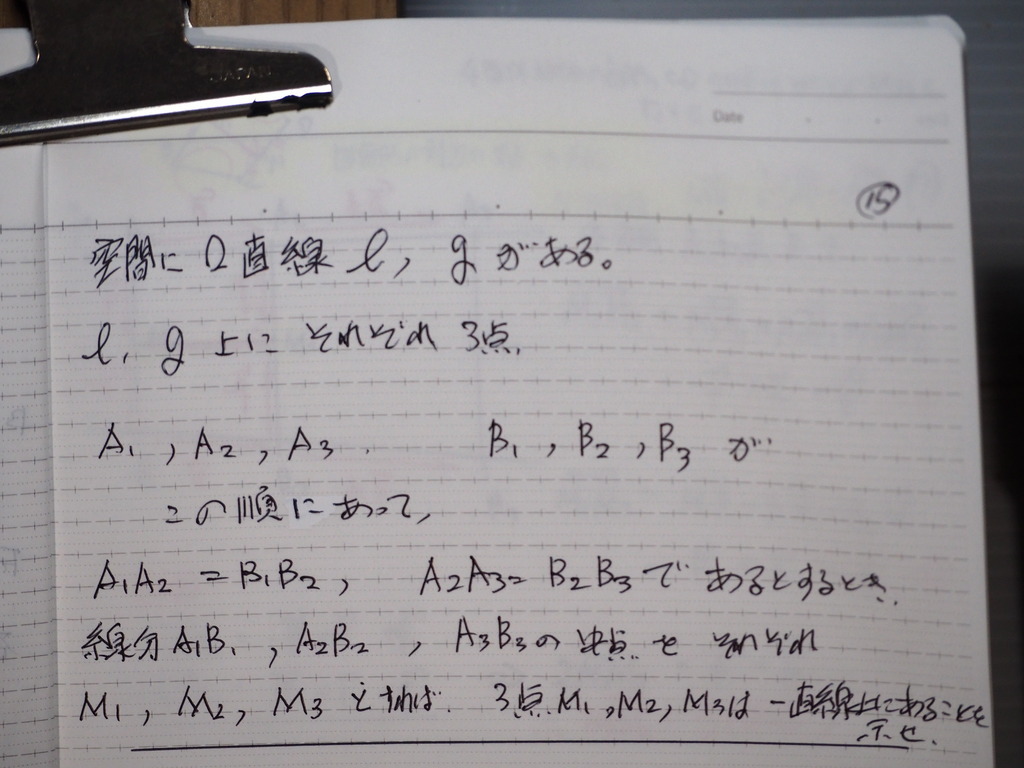 JAPAN
Date
15
空間に2直線 l, g がある。
l, g 上に それぞれ 3点,
A1, A2, A3. B1, B2, B3 が
この順にあって,
A1A2 = B1B2, A2A3 = B2B3 で あるとするとき,
線分 A1B1, A2B2, A3B3の 中点 を それぞれ
M1, M2, M3 とすれば. 3点 M1, M2, M3は 一直線上にあることを
示せ.